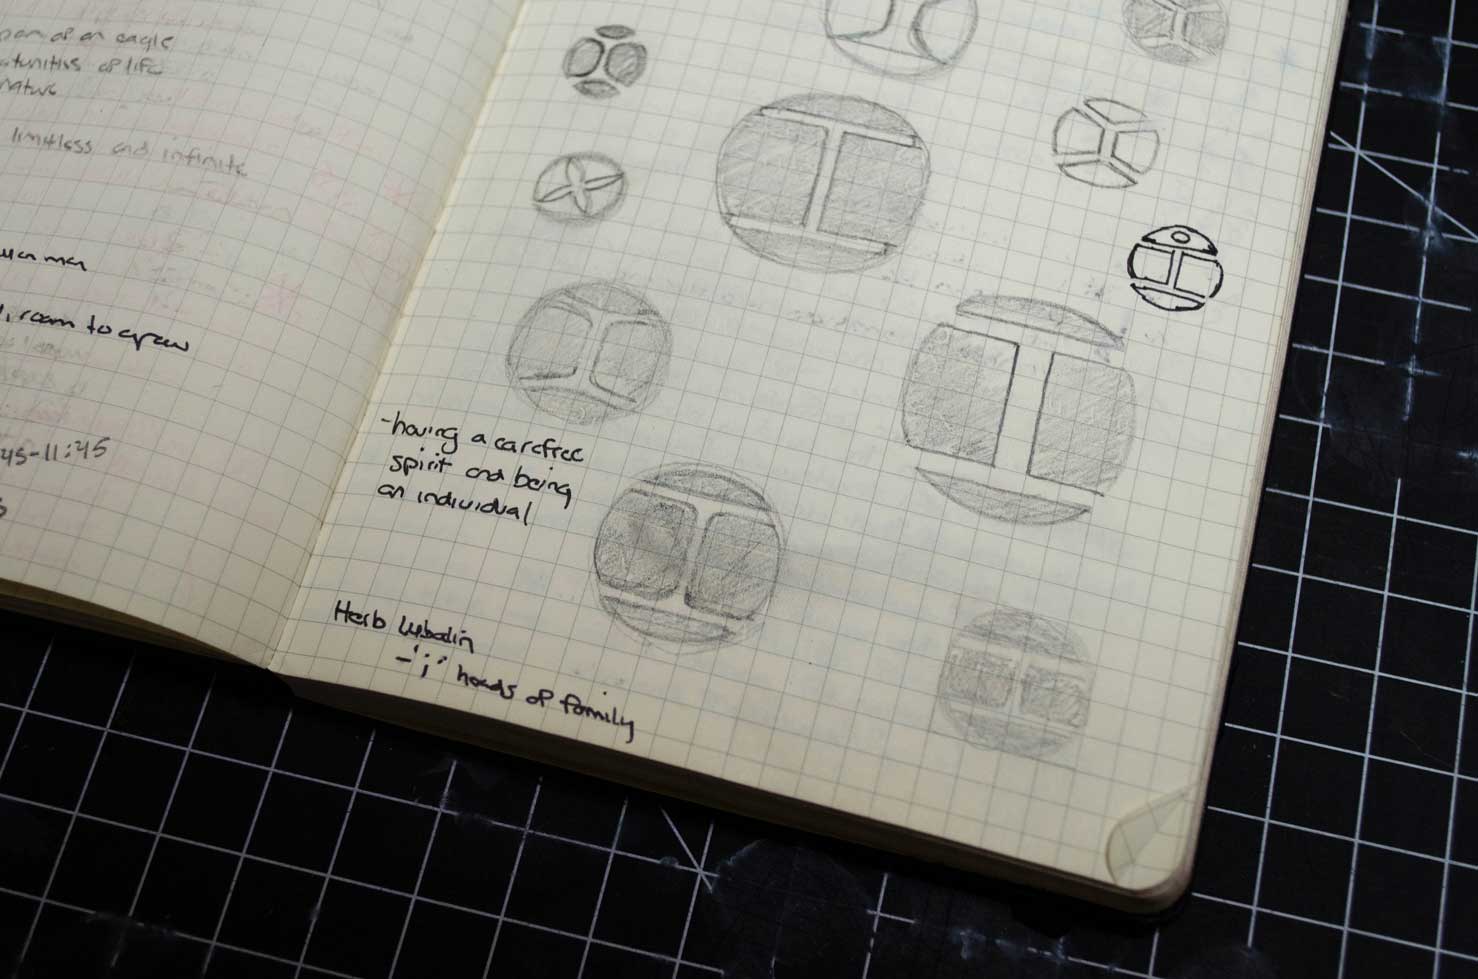 of an eagle
of life
limitless and infinite
men
room to grow
45-11:45
-having a carefree
spirit and being
an individual
Herb Lubalin
-'i' heads of family